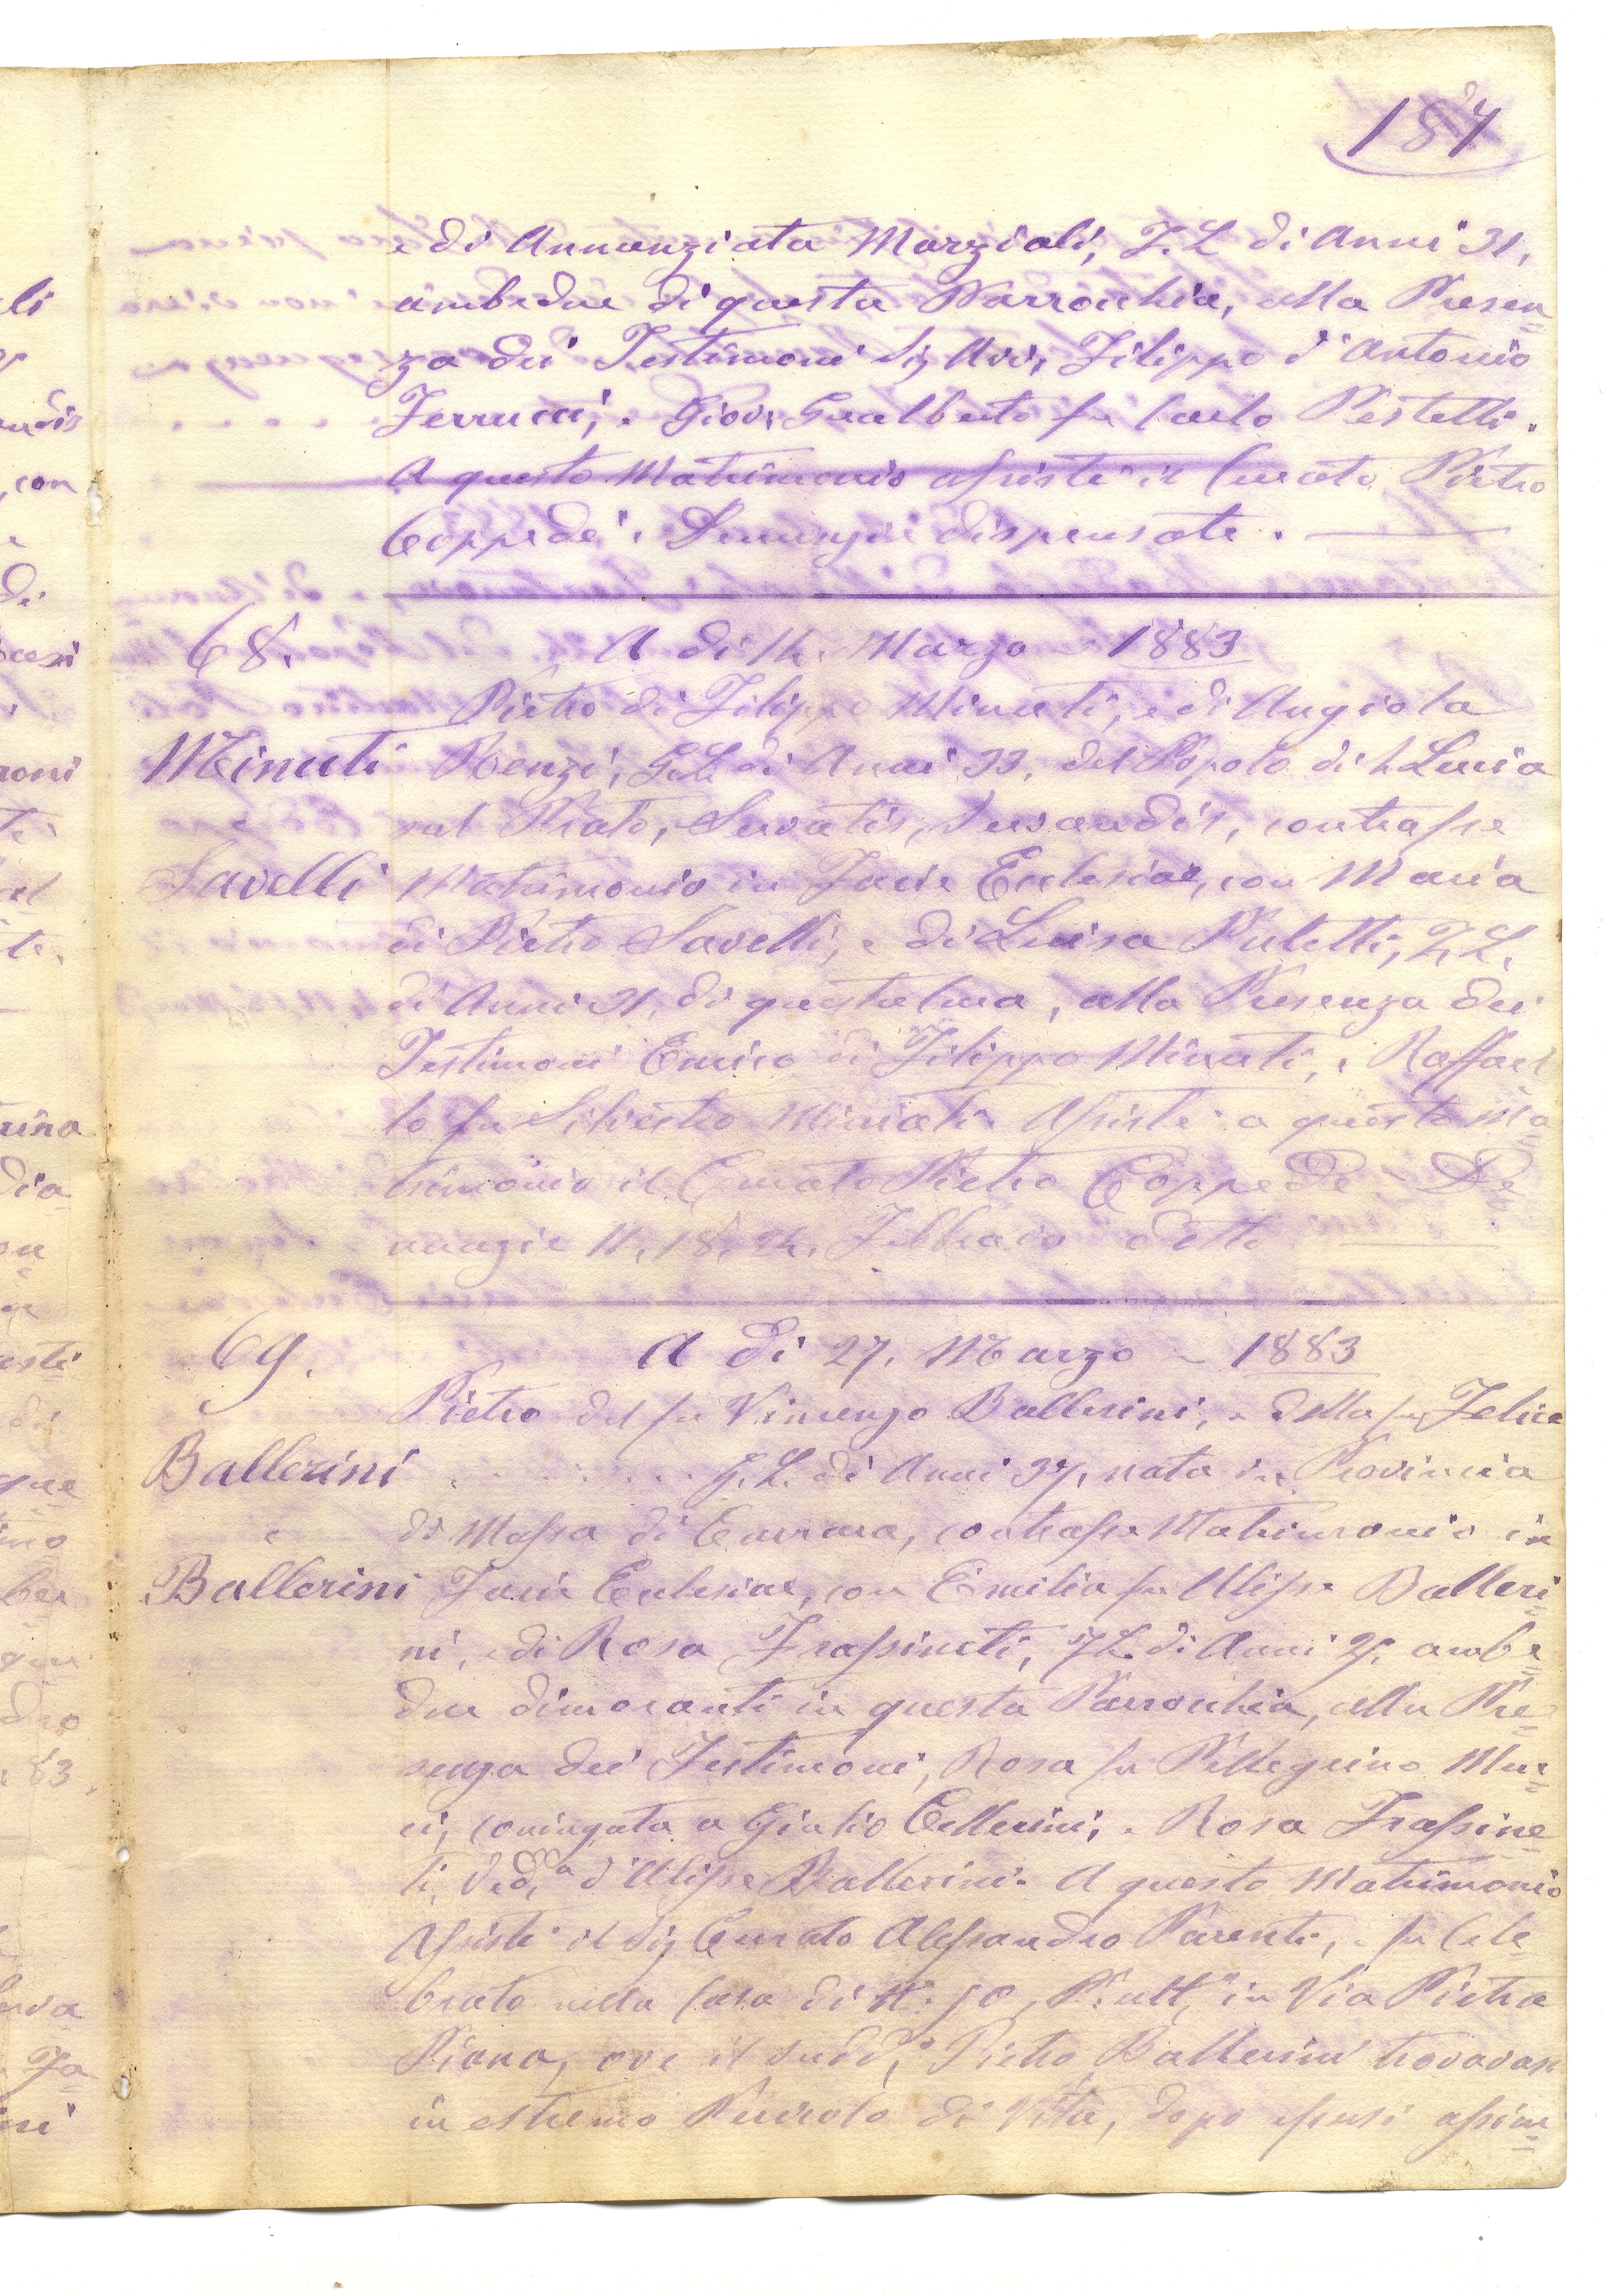 184
e di Annunziata Marziali, F. L. di Anni 31,
ambedue di questa Parrocchia, alla Presen=
za dei Testimoni Sig Avv, Filippo d'Antonio
Ferrucci, e Giov: Gualberto fu Carlo Pestelli.
A questo Matrimonio assistè il Curato Pietro
Coppedè. Denunzie dispensate.
68. A dì 14. Marzo 1883
Pietro di Filippo Minuti, e di Angiola
Minuti Renzi, G. L. di Anni 33, del Popolo di S. Lucia
e sul Prato, Servatis, Servandis, contrasse
Savelli Matrimonio in Facie Eclesiae, con Maria
di Pietro Savelli, e di Luisa Puletti, F. L.
di Anni 31, di questa Cura, alla Presenza dei
Testimoni Enrico di Filippo Minuti, e Raffael
lo fu Silvestro Minuti Assistè a questo Ma=
trimonio il Curato Pietro Coppedè De=
nunzie 11, 18, 24, Febbraio detto
69. A dì 27. Marzo 1883
Pietro del fu Vincenzo Ballerini, e della fu Felice
Ballerini . . . . . . . . G. L. di Anni 37, nato in Provincia
e di Massa di Carrara, contrasse Matrimonio in
Ballerini Facie Eclesiae, con Emilia fu Ulisse Balleri=
ni, e di Rosa Frassineti, F. L. di Anni ambe=
due dimoranti in questa Parrocchia, alla Pre=
senza dei Testimoni, Rosa fu Pellegrino
ci, coniugata a Giulio Cellerini, e Rosa Frassine=
ti, Ved,ª d'Ulisse Ballerini. A questo Matrimonio
Assistè il Sig Curato Alessandro Parenti, e fu Cele=
brato nella Casa di N: in Via Pietra
Piana, ove il sudd,º Pietro Ballerini trovavasi
in estremo Pericolo di Vita, dopo essersi assicu=